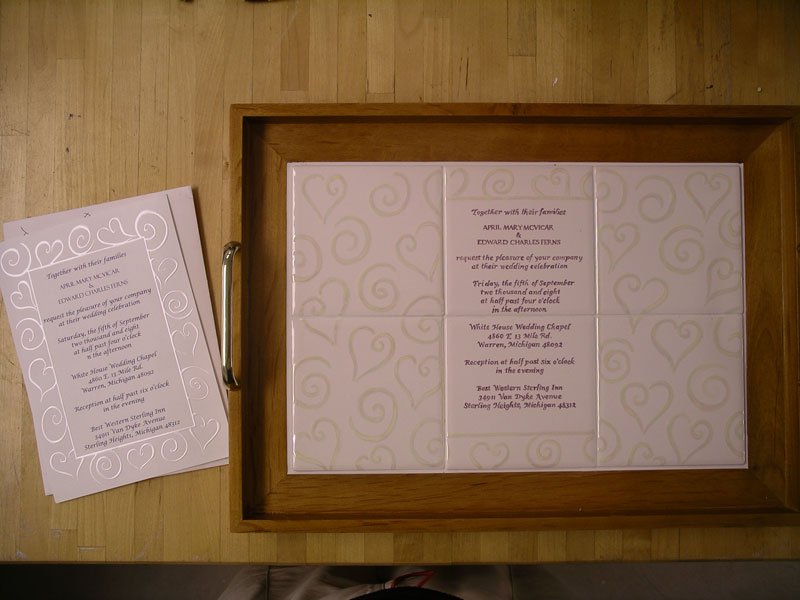 Together with their families
APRIL MARY MCVICAR
&
EDWARD CHARLES FERNS
request the pleasure of your company
at their wedding celebration
Saturday, the fifth of September
two thousand and eight
at half past four o'clock
n the afternoon
White House Wedding Chapel
4860 E. 13 Mile Rd.
Warren, Michigan 48092
Reception at half past six o'clock
in the evening
Best Western Sterling Inn
34911 Van Dyke Avenue
Sterling Heights, Michigan 48312
Together with their families
APRIL MARY MCVICAR
&
EDWARD CHARLES FERNS
request the pleasure of your company
at their wedding celebration
Friday, the fifth of September
two thousand and eight
at half past four o'clock
in the afternoon
White House Wedding Chapel
4860 E. 13 Mile Rd.
Warren, Michigan 48092
Reception at half past six o'clock
in the evening
Best Western Sterling Inn
34911 Van Dyke Avenue
Sterling Heights, Michigan 48312